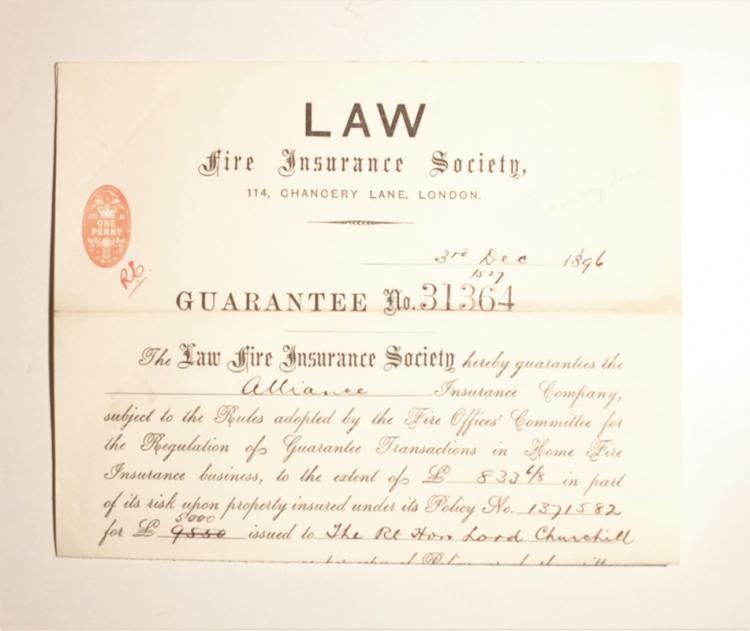 LAW
Fire Insurance Society,
114, CHANCERY LANE, LONDON.
ONE
PENNY
3rd Dec 1896
1527
GUARANTEE No. 31364
The Law Fire Insurance Society hereby guarantees the
Alliance Insurance Company,
subject to the Rules adopted by the Fire Offices' Committee for
the Regulation of Guarantee Transactions in Home Fire
Insurance business, to the extent of £ 833 6/8 in part
of its risk upon property insured under its Policy No. 1371582
5000
for £ 9550 issued to The Rt Hon Lord Churchill